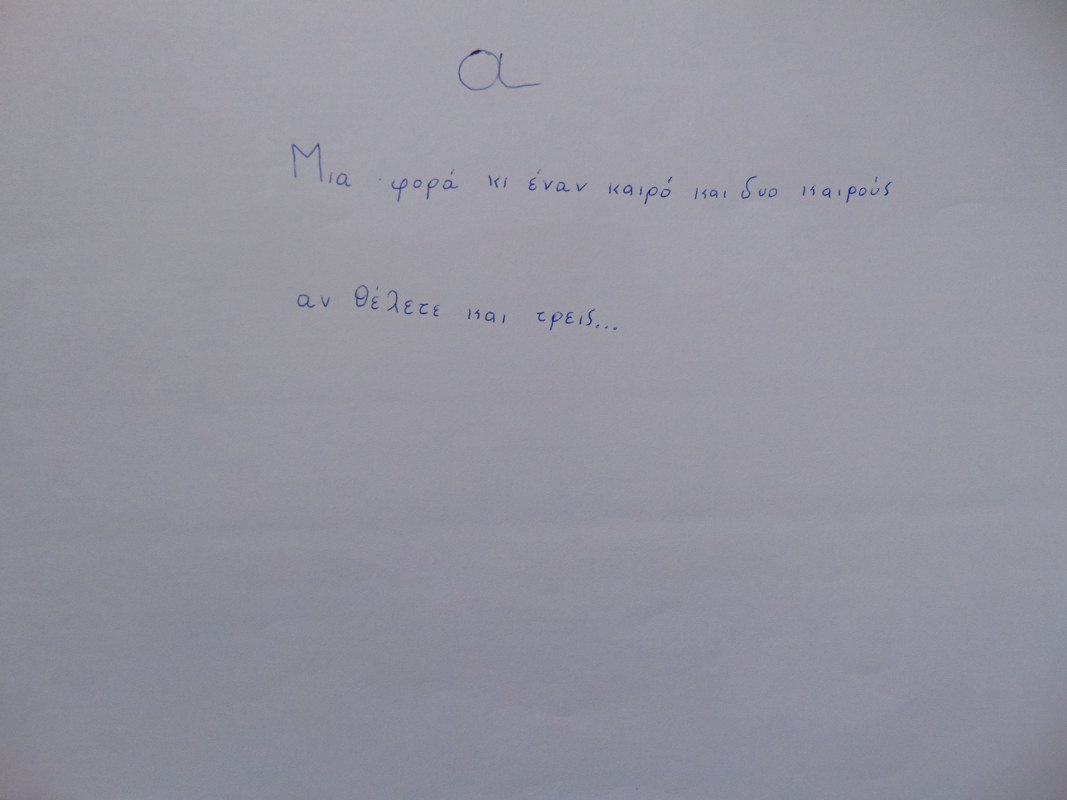 α
Μια φορά κι έναν καιρό και δυο καιρούς
αν θέλετε και τρεις...